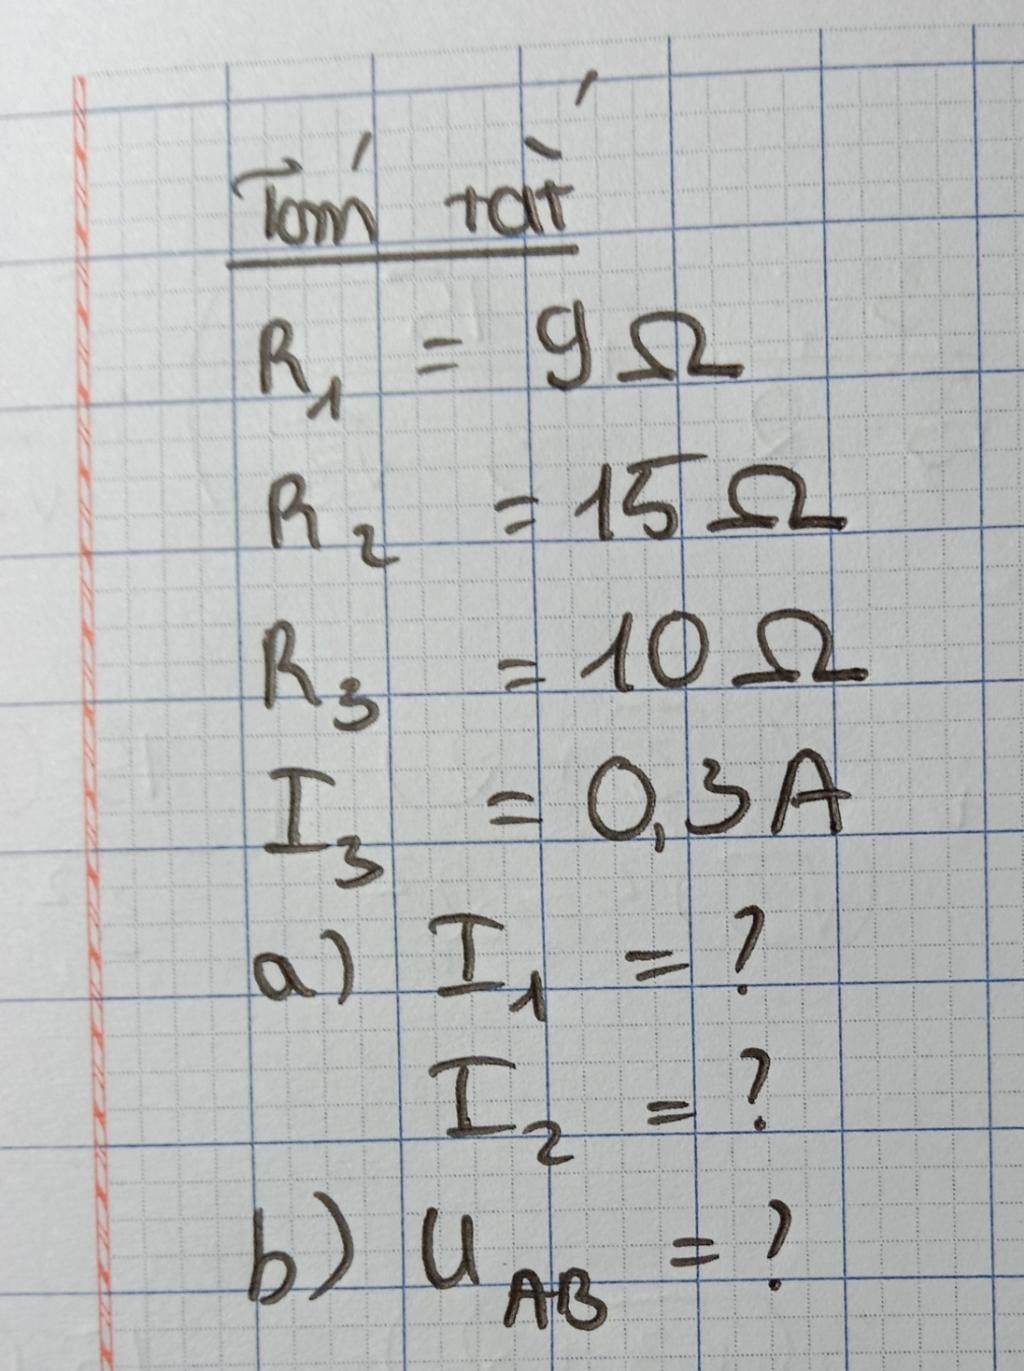 Tóm tắt
R₁ = 9 Ω
R₂ = 15 Ω
R₃ = 10 Ω
I₃ = 0,3 A
a) I₁ = ?
I₂ = ?
b) U_AB = ?